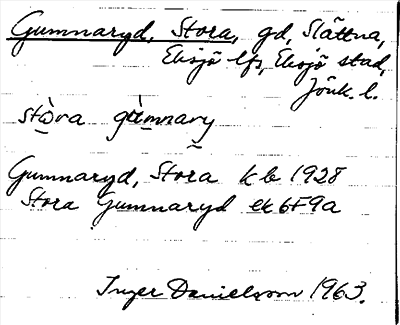 Gummaryd, Stora, gd, Slättna,
Eksjö lfs, Eksjö stad,
Jönk. l.
stòra gùmnary
Gummaryd, Stora kb 1928
Stora Gummaryd ek 6F9a
Inger Danielsson 1963.